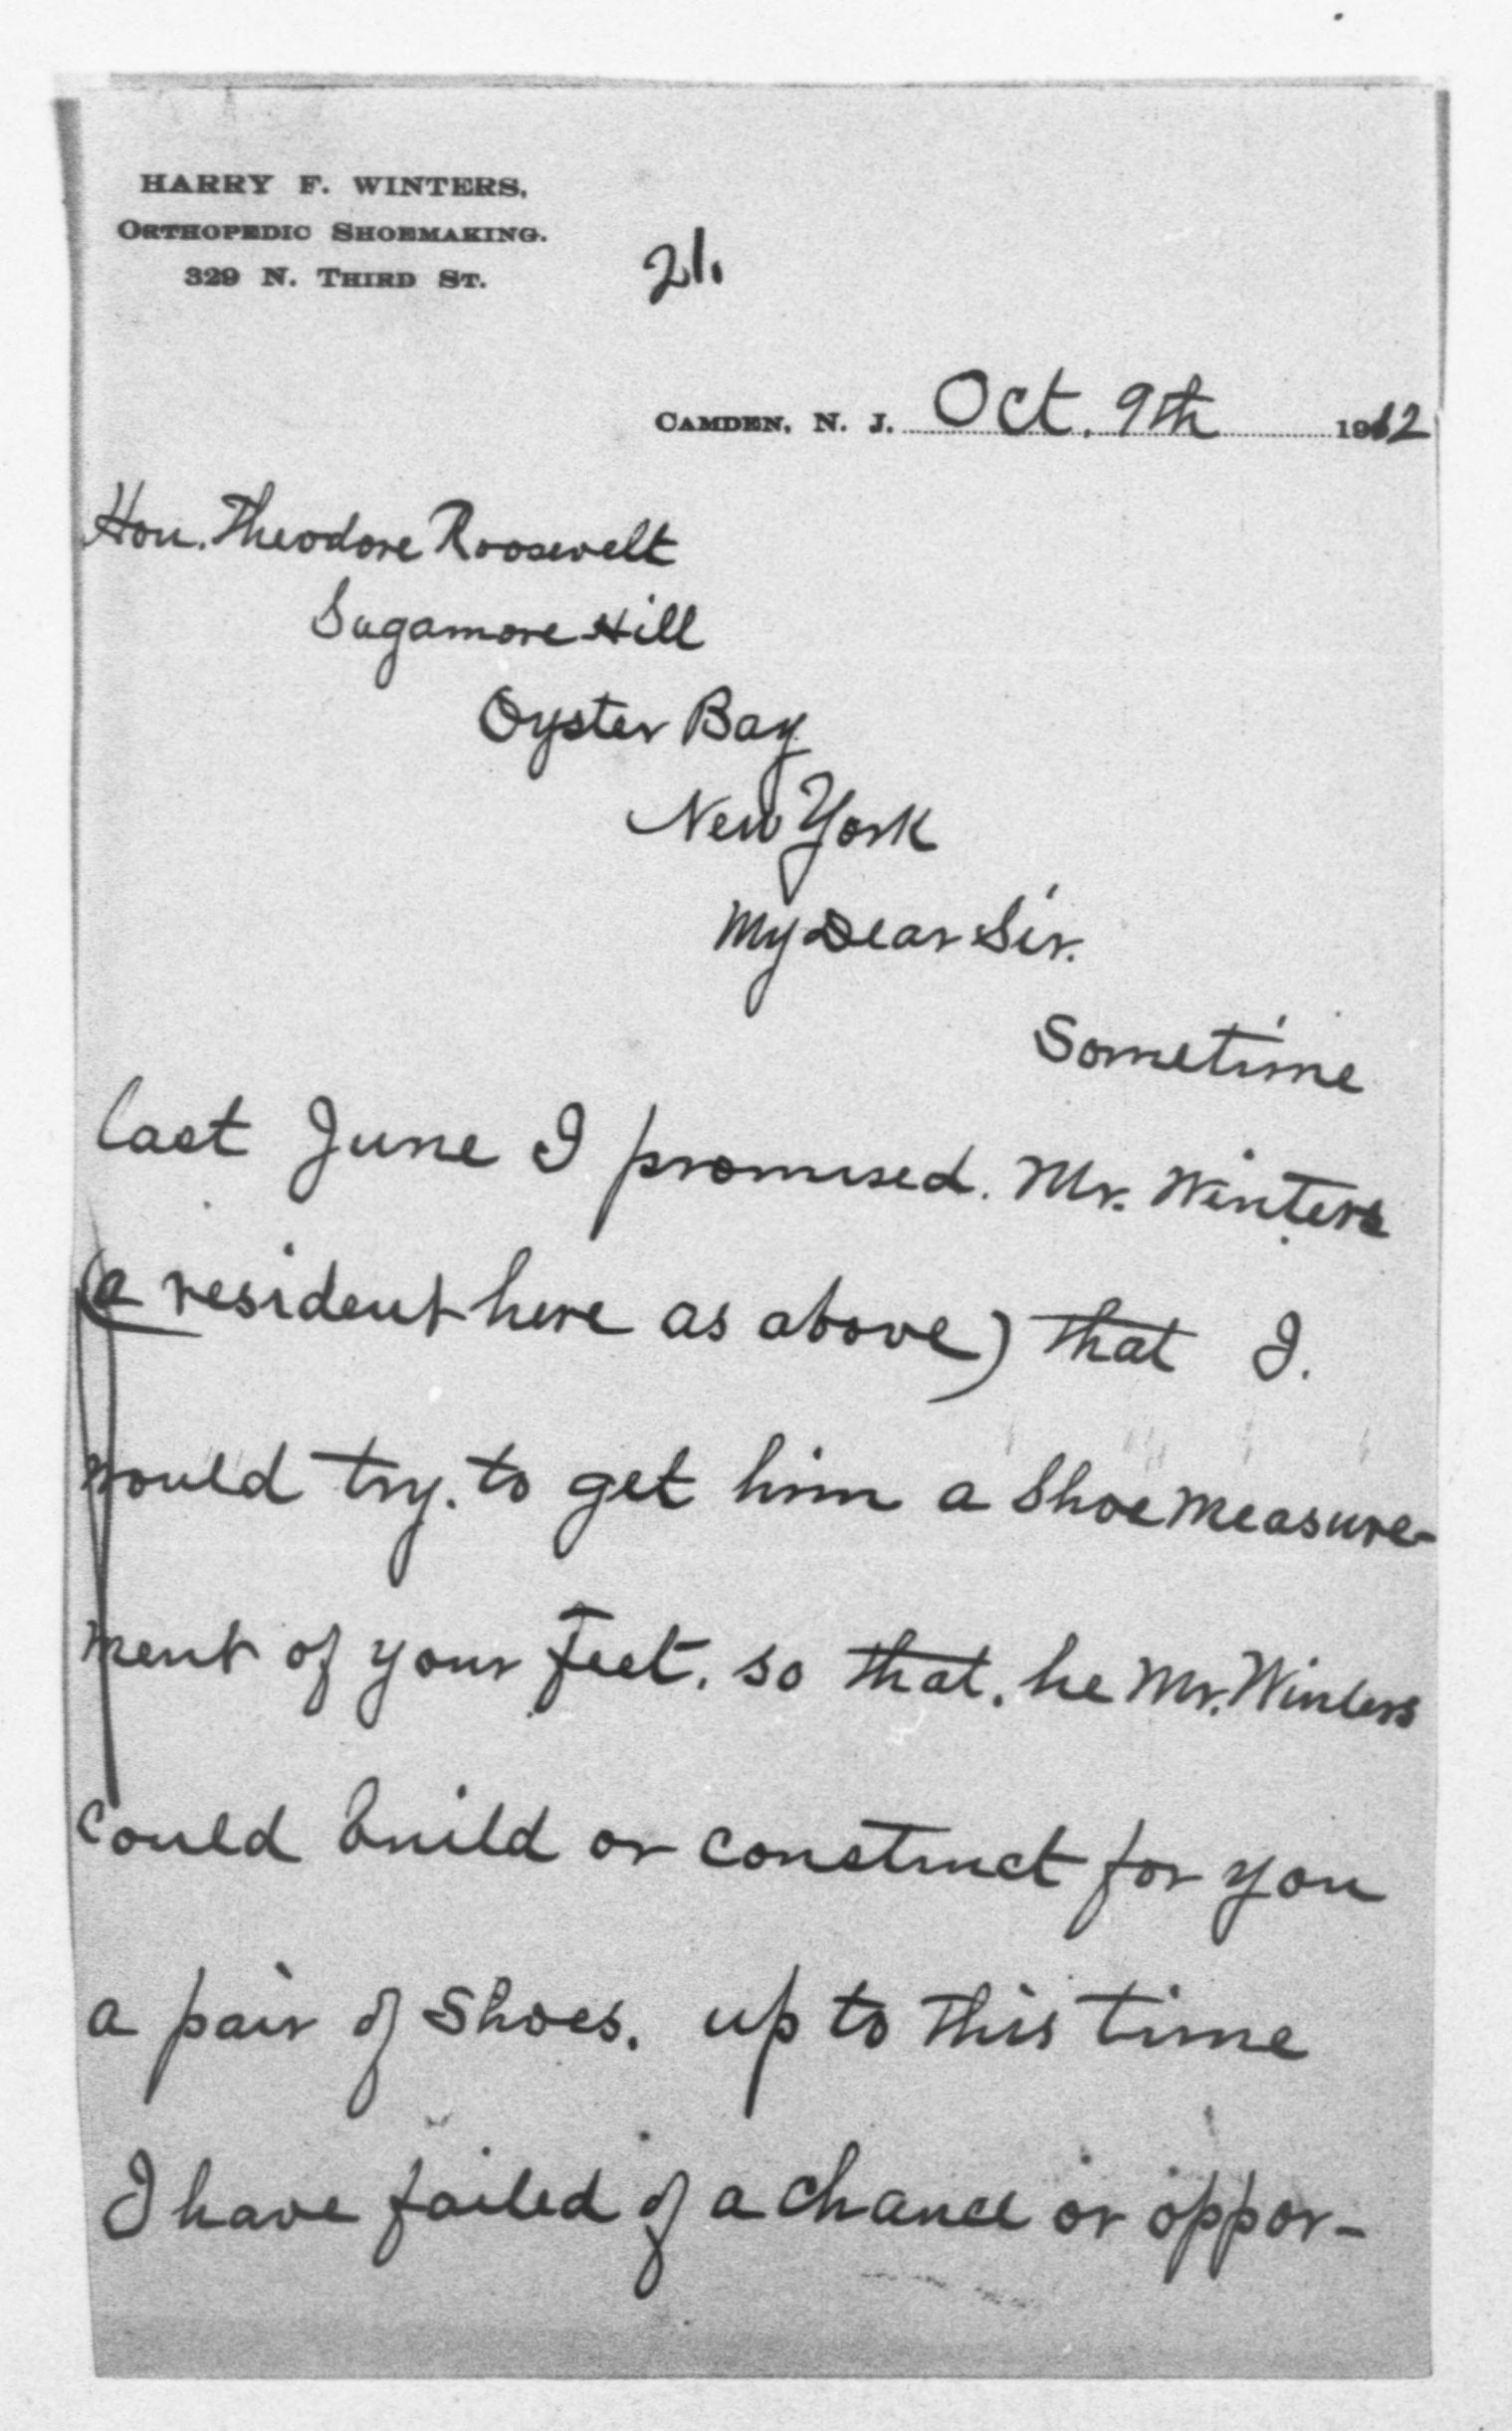 HARRY F. WINTERS,
ORTHOPEDIC SHOEMAKING.
329 N. THIRD ST.
21.
CAMDEN, N. J. Oct. 9th 1912
Hon. Theodore Roosevelt
Sagamore Hill
Oyster Bay
New York
My Dear Sir.
Sometime
last June I promised. Mr. Winters
(a resident here as above) that I.
would try. to get him a Shoe measure-
ment of your feet. so that. he Mr. Winters
could build or construct for you
a pair of shoes. up to this time
I have failed of a chance or oppor-